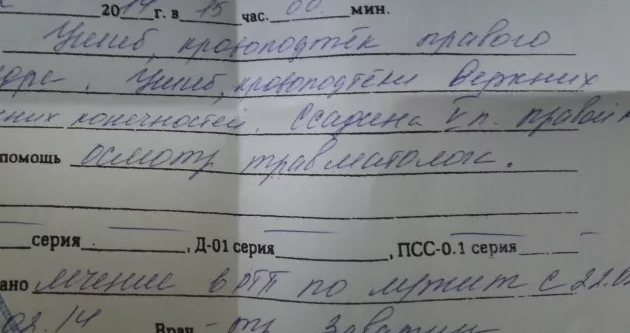 2014 г. в 15 час. 00 мин.
Ушиб, кровоподтёк правого
Ушиб, кровоподтёки верхних
них конечностей. Ссадина V п. правой
помощь осмотр травматолога.
серия , Д-01 серия , ПСС-0.1 серия
ано лечение в РТП по с 22.0
02.14 Врач